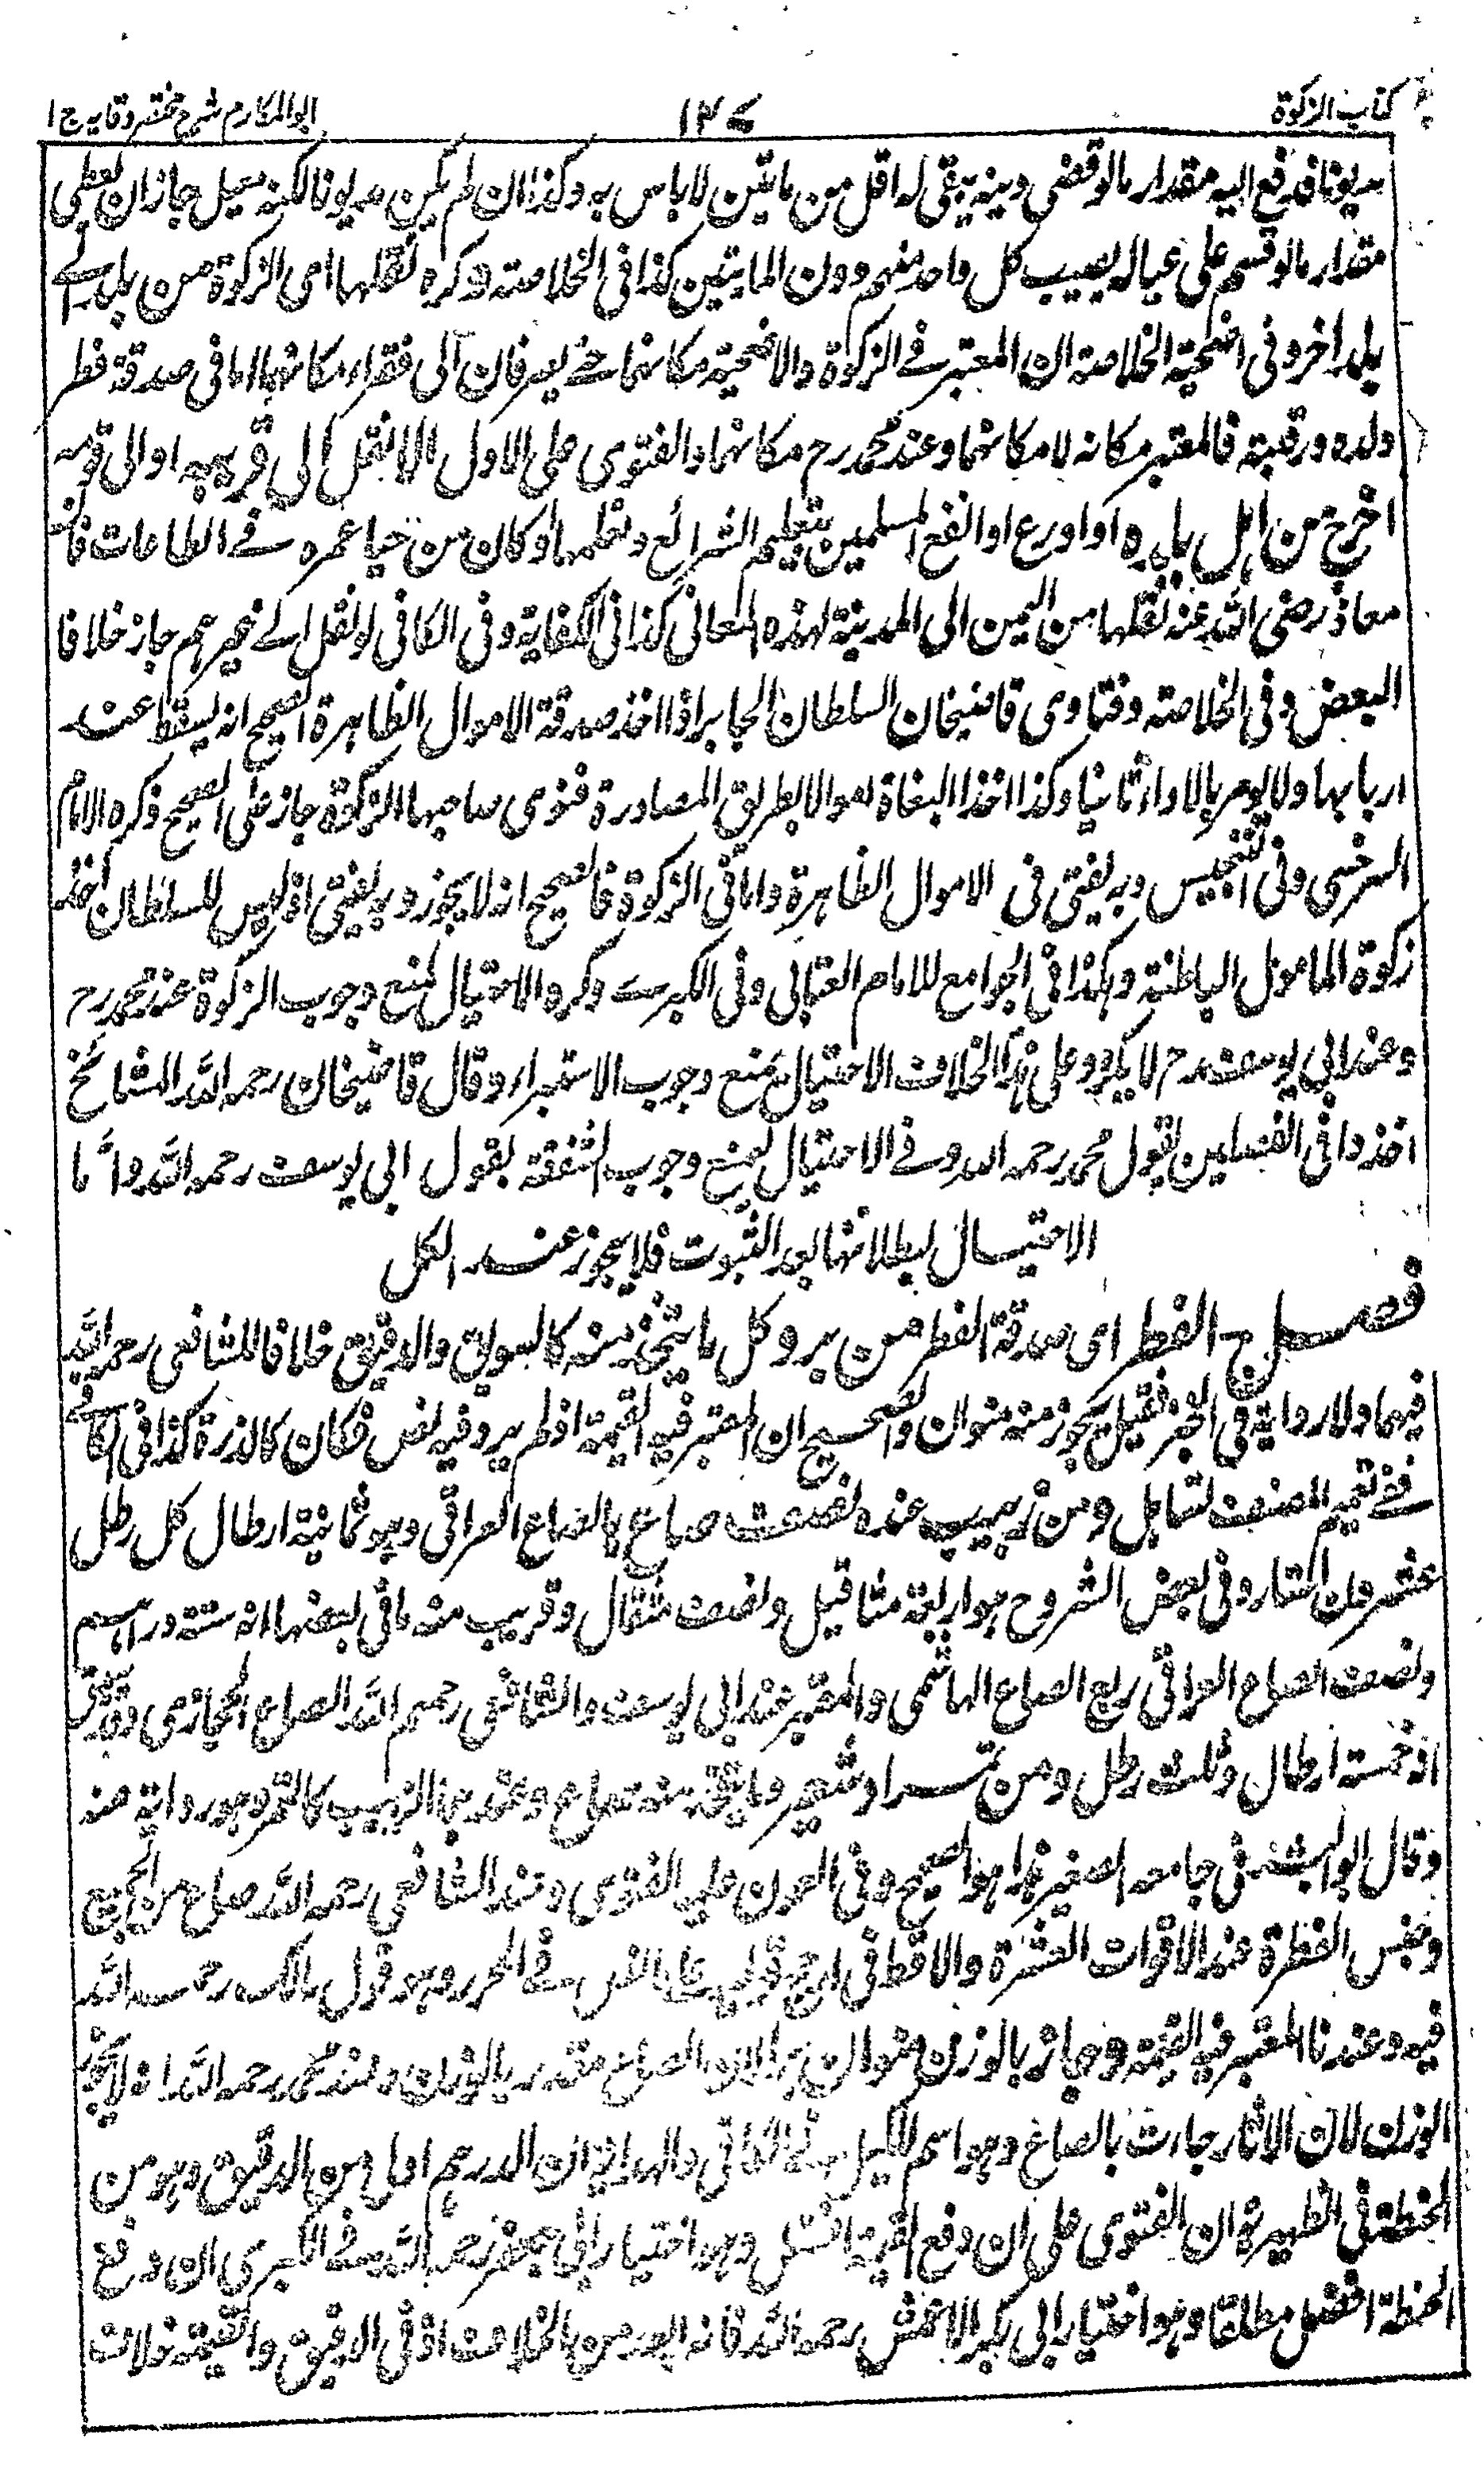 كتاب الزكوة
١٣٧
ابو المكارم شرح مختصر وقايه ج ١
مديونا فدفع اليه مقدار ما لو قضى دينه يبقى له اقل من مايتين لا باس به وكذا ان لم يكن مديونا لكنه معيل جاز ان يعطى
مقدار ما لو قسم على عياله يصيب كل واحد منهم دون المايتين كذا فى الخلاصة وكره نقلها اى الزكوة من بلد الے
بلد اخر وفى اضحية الخلاصة ان المعتبر فے الزكوة والاضحية مكانهما حتے يصرفان الى فقراء مكانهما اما فى صدقة فطر
ولده ورقبته فالمعتبر مكانه لا مكانهما وعند محمد رح مكانهما والفتوى على الاول الا لنقل الى قريبه او الى قوم
احوج من اهل بلده او اورع او انفع للمسلمين بتعليم الشرائع وتعلمها او كان من حيا عمره فے الطاعات فان
معاذ رضى الله عنه نقلها من اليمن الى المدينة لهذه المعانى كذا فى الكفاية وفى الكافى لو نقل الے غيرهم جاز خلافا
البعض وفى الخلاصة وفتاوى قاضيخان السلطان الجابر اذا اخذ صدقة الاموال الظاهرة الصحيح انه يسقط عن
اربابها ولا يومر بالاداء ثانيا وكذا اخذ البغاة اموالا بطريق المصادرة فنوى صاحبها الزكوة جاز على الصحيح ذكره الامام
السرخسى وفى التجنيس وبه يفتى فى الاموال الظاهرة واما فى الزكوة فالصحيح انه لا يجوز وبه يفتى اذ ليس للسلطان اخذ
زكوة الاموال الباطنة وهكذا فى الجوامع للامام العتابى وفى الكبرے وكره الاحتيال لمنع وجوب الزكوة عند محمد رح
وعند ابى يوسف رح لا يكره وعلى هذا الخلاف الاحتيال لمنع وجوب الاستبراء وقال قاضيخان رحمه الله المشائخ
اخذوا فى الفصلين بقول محمد رحمه الله وفے الاحتيال لمنع وجوب الشفعة بقول ابى يوسف رحمه الله واما
الاحتيال لبطلانها بعد الثبوت فلا يجوز عند الكل
فصل الفطر اى صدقة الفطر من بر وكل ما يتخذ منه كالسويق والدقيق خلافا للشافعى رحمه الله
فيهما ولا رواية فى الخبز فقيل يجوز منه منوان والصحيح ان المعتبر فيه القيمة اذ لم يرد فيه نص فكان كالذرة كذا فى الكافے
ففے تعميم المصنف تساهل ومن زبيب عنده نصف صاع بالصاع العراقى وهو ثمانية ارطال كل رطل
عشرون استارا وفى بعض الشروح هو اربعة مثاقيل ونصف مثقال وقريب منه ما فى بعضها انه ستة دراهم
ونصف الصاع العراقى ربع الصاع الهاشمى والمعتبر عند ابى يوسف والشافعى رحمهم الله الصاع الحجازى
او خمسة ارطال وثلث رطل ومن تمر او شعير وما يتخذ منه صاع وعندهما الزبيب كالتمر وهو رواية عنه
وقال ابو اليسر فى جامعه الصغير هذا هو الصحيح وفى العيون عليه الفتوى وعند الشافعى رحمه الله صاع من الجميع
وجنس الفطرة عنده الاقوات العشرة والاقط فى ارجح قوليه على ما نص فے المحرر وهو قول مالك رحمه الله
فيه وعندنا المعتبر فيه القيمة وجاز بالوزن منوان برا لان الصاع مقدر بالوزن وعند محمد رحمه الله انه لا يجوز
الوزن لان الاثار جاءت بالصاع وهو اسم للكيل فے الكافى والهداية ان الدرهم اولى من الدقيق وهو من
الحنطة فى الظهيرية ان الفتوى على ان دفع القيمة افضل وهو اختيار ابى جعفر رحمه الله فے الكبرى ان دفع
الحنطة افضل مطلقا وهو اختيار ابى بكر الاعمش رحمه الله فانه ابعد من الخلاف اذ فى الدقيق والقيمة خلاف